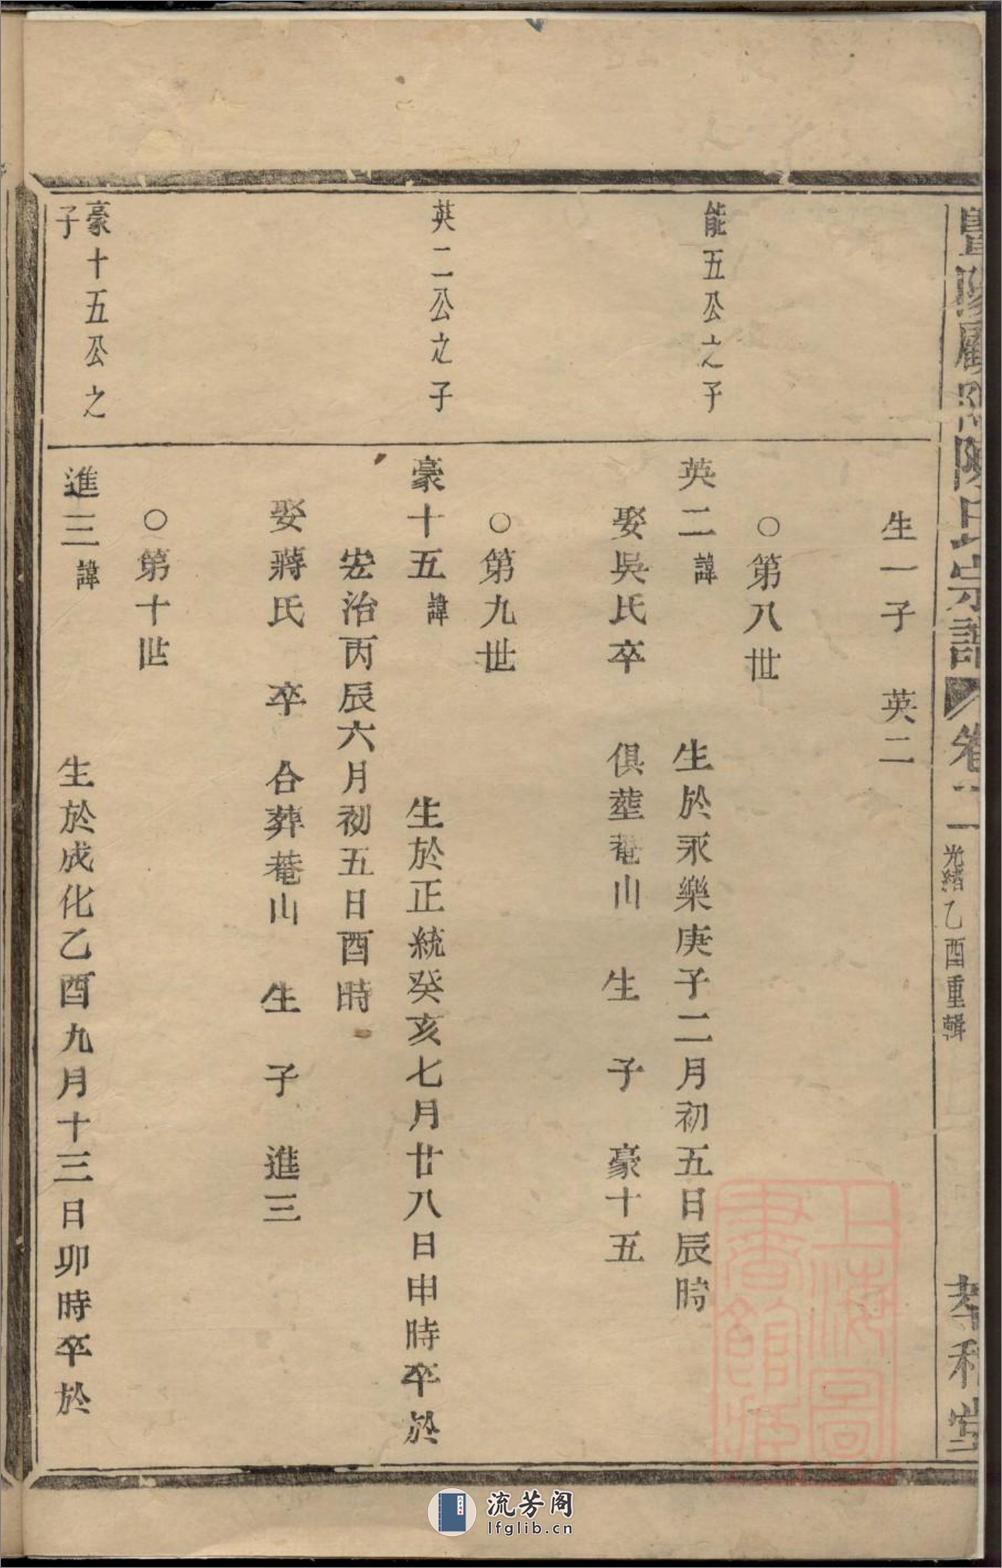 暨陽顧隝陳氏宗譜 卷二 光緒乙酉重輯 孝和堂
生一子 英二
○第八世
能五公之子
英二諱 生於永樂庚子二月初五日辰時
娶吳氏卒 俱塟菴山 生 子 豪十五
○第九世
英二公之子
豪十五諱 生於正統癸亥七月廿八日申時卒於
宏治丙辰六月初五日酉時
娶蔣氏 卒 合葬菴山 生 子 進三
○第十世
豪十五公之
子
進三諱 生於成化乙酉九月十三日卯時卒於
上海圖
書館藏
流芳阁
lfglib.cn